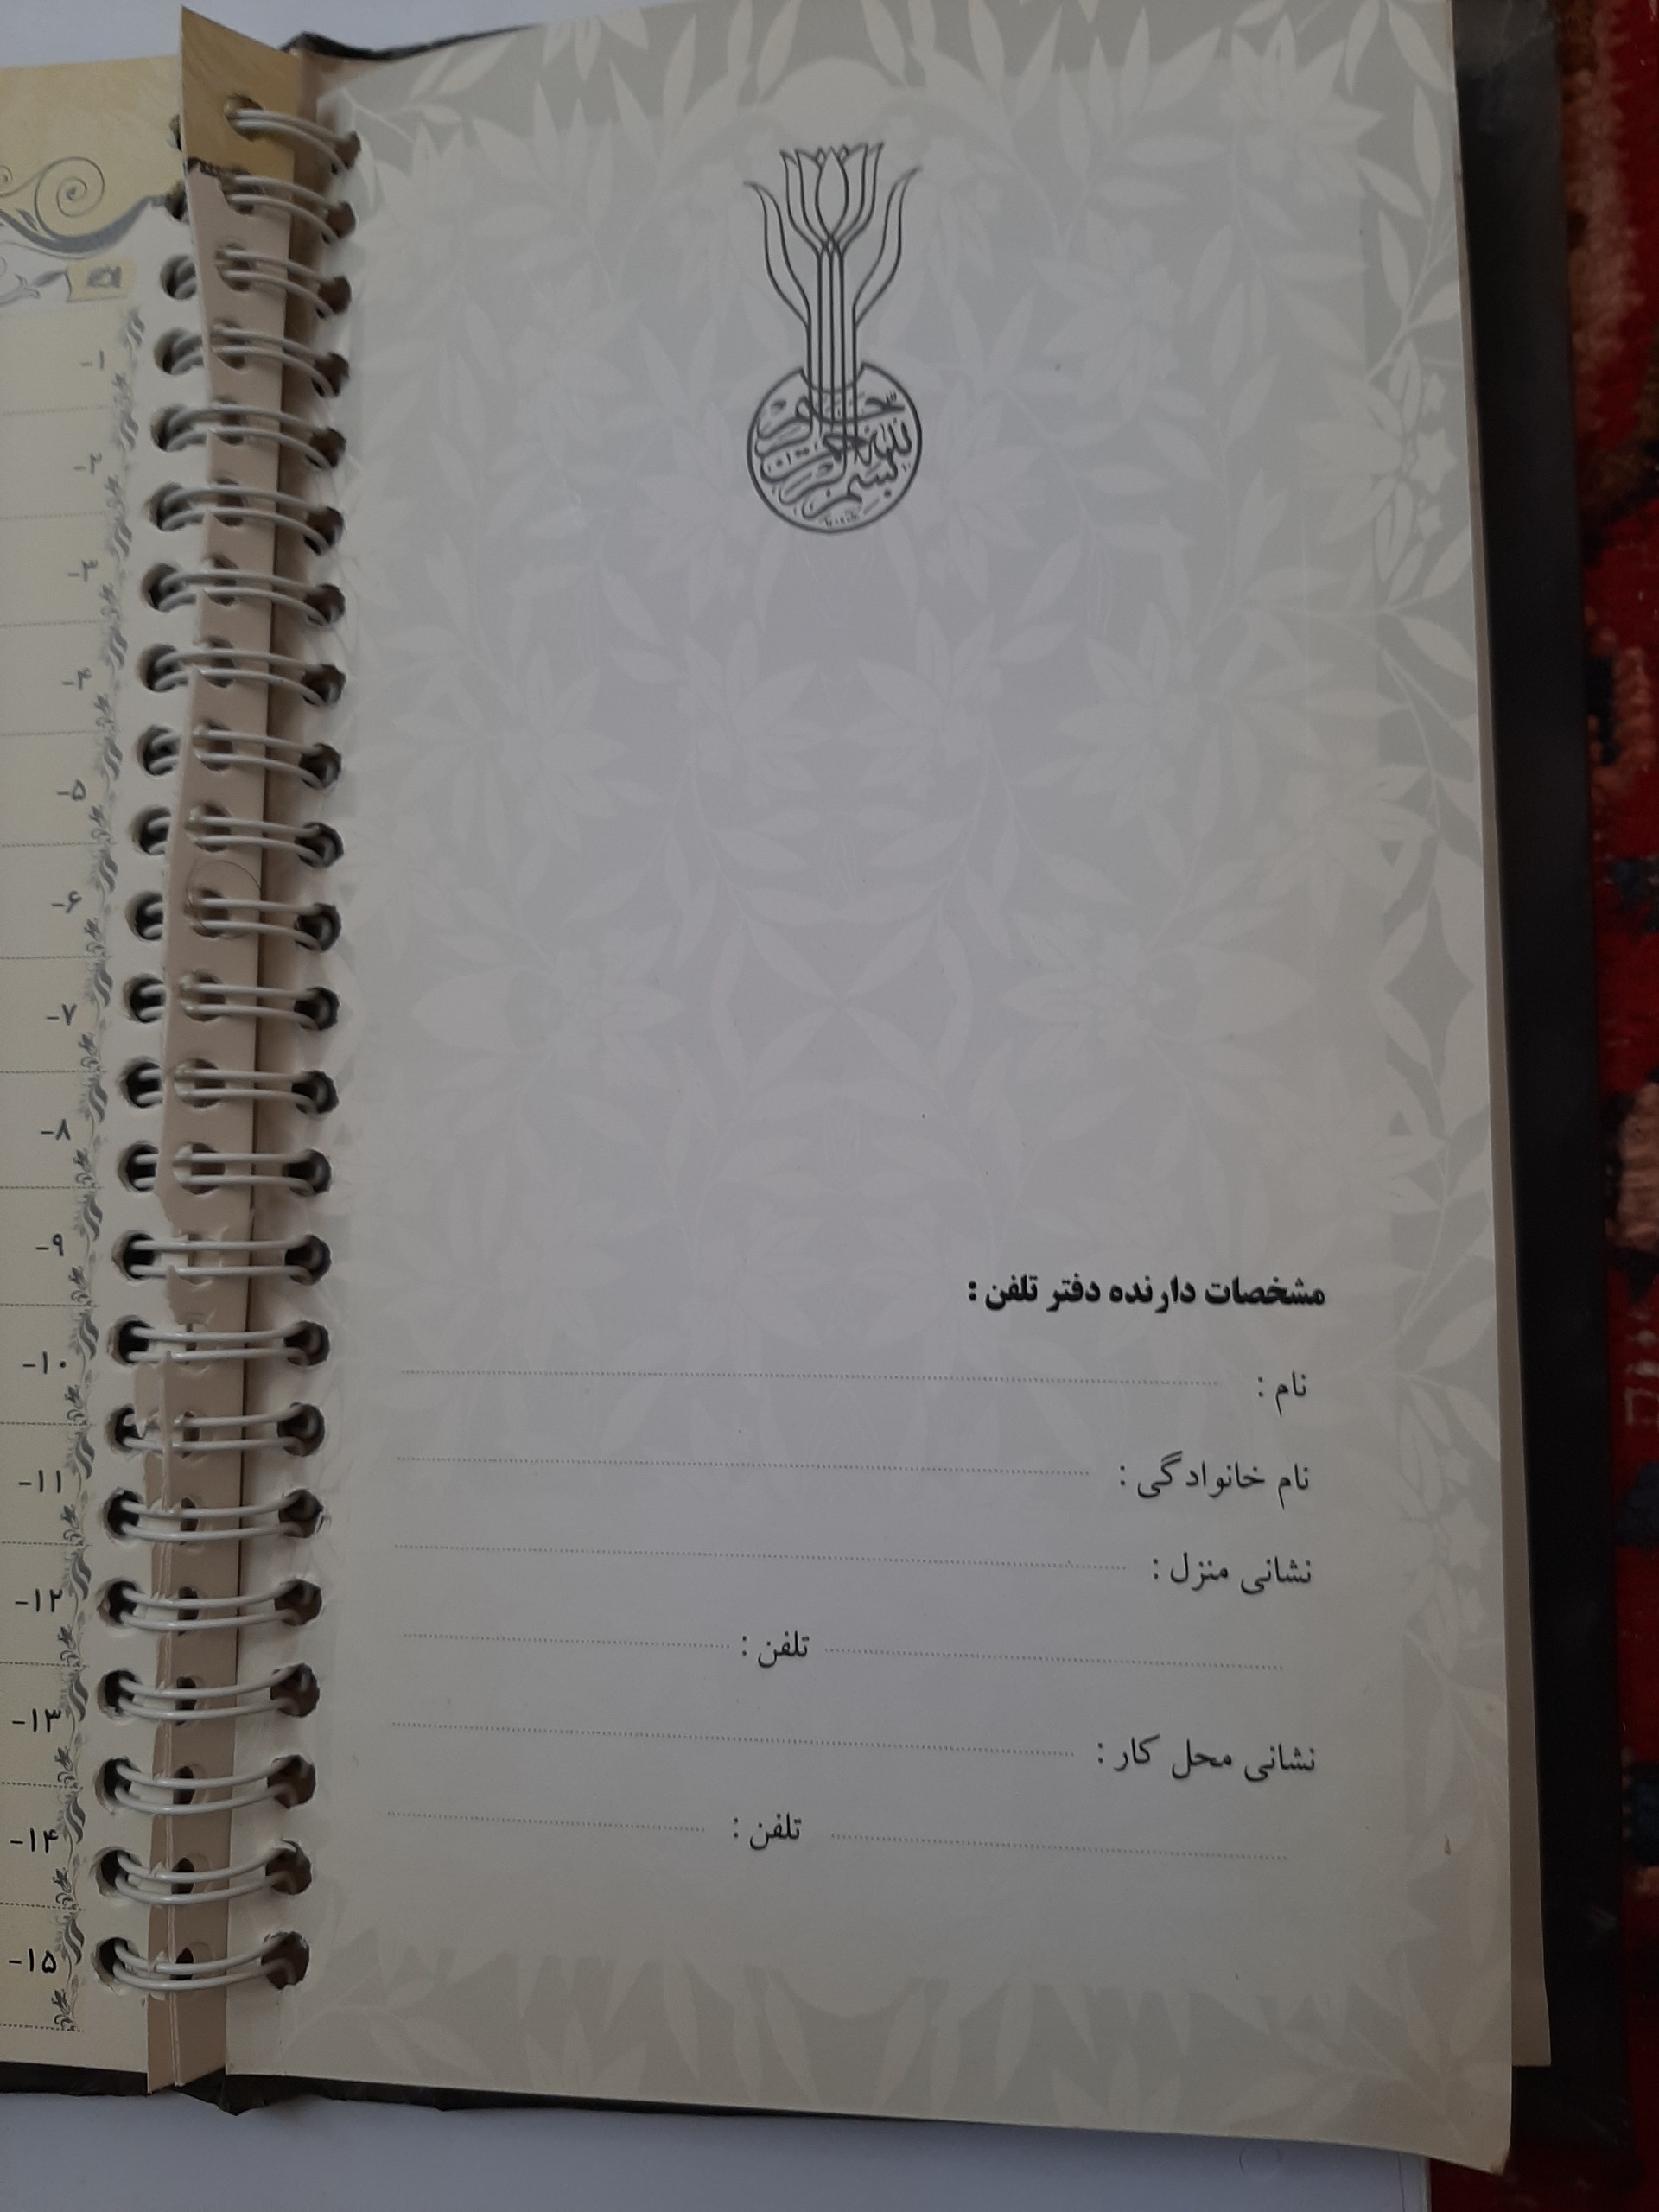 بسم الله الرحمن الرحیم
مشخصات دارنده دفتر تلفن :
نام :
نام خانوادگی :
نشانی منزل :
تلفن :
نشانی محل کار :
تلفن :
۱-
۲-
۳-
۴-
۵-
۶-
۷-
۸-
۹-
۱۰-
۱۱-
۱۲-
۱۳-
۱۴-
۱۵-